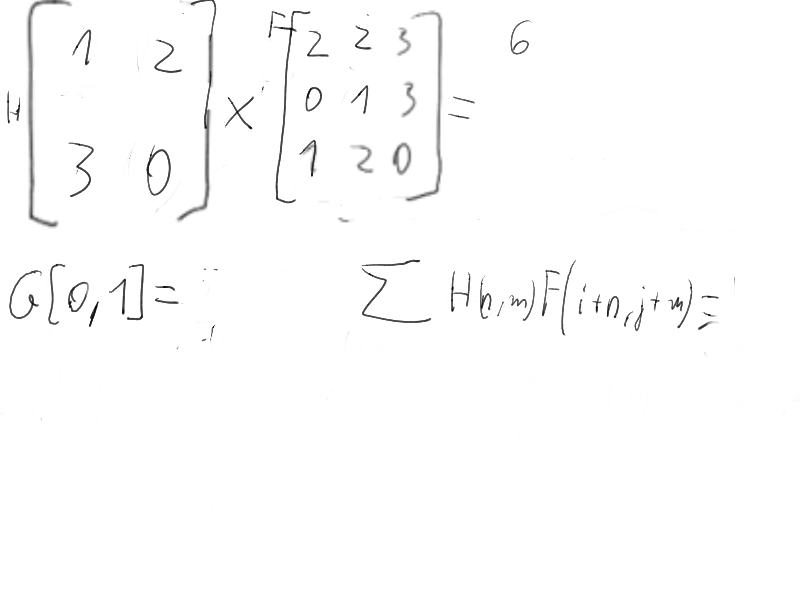 H [1 2 3 0] × F [2 2 3 0 1 3 1 2 0] = 6
G[0,1] = Σ H(n,m)F(i+n,j+m) =